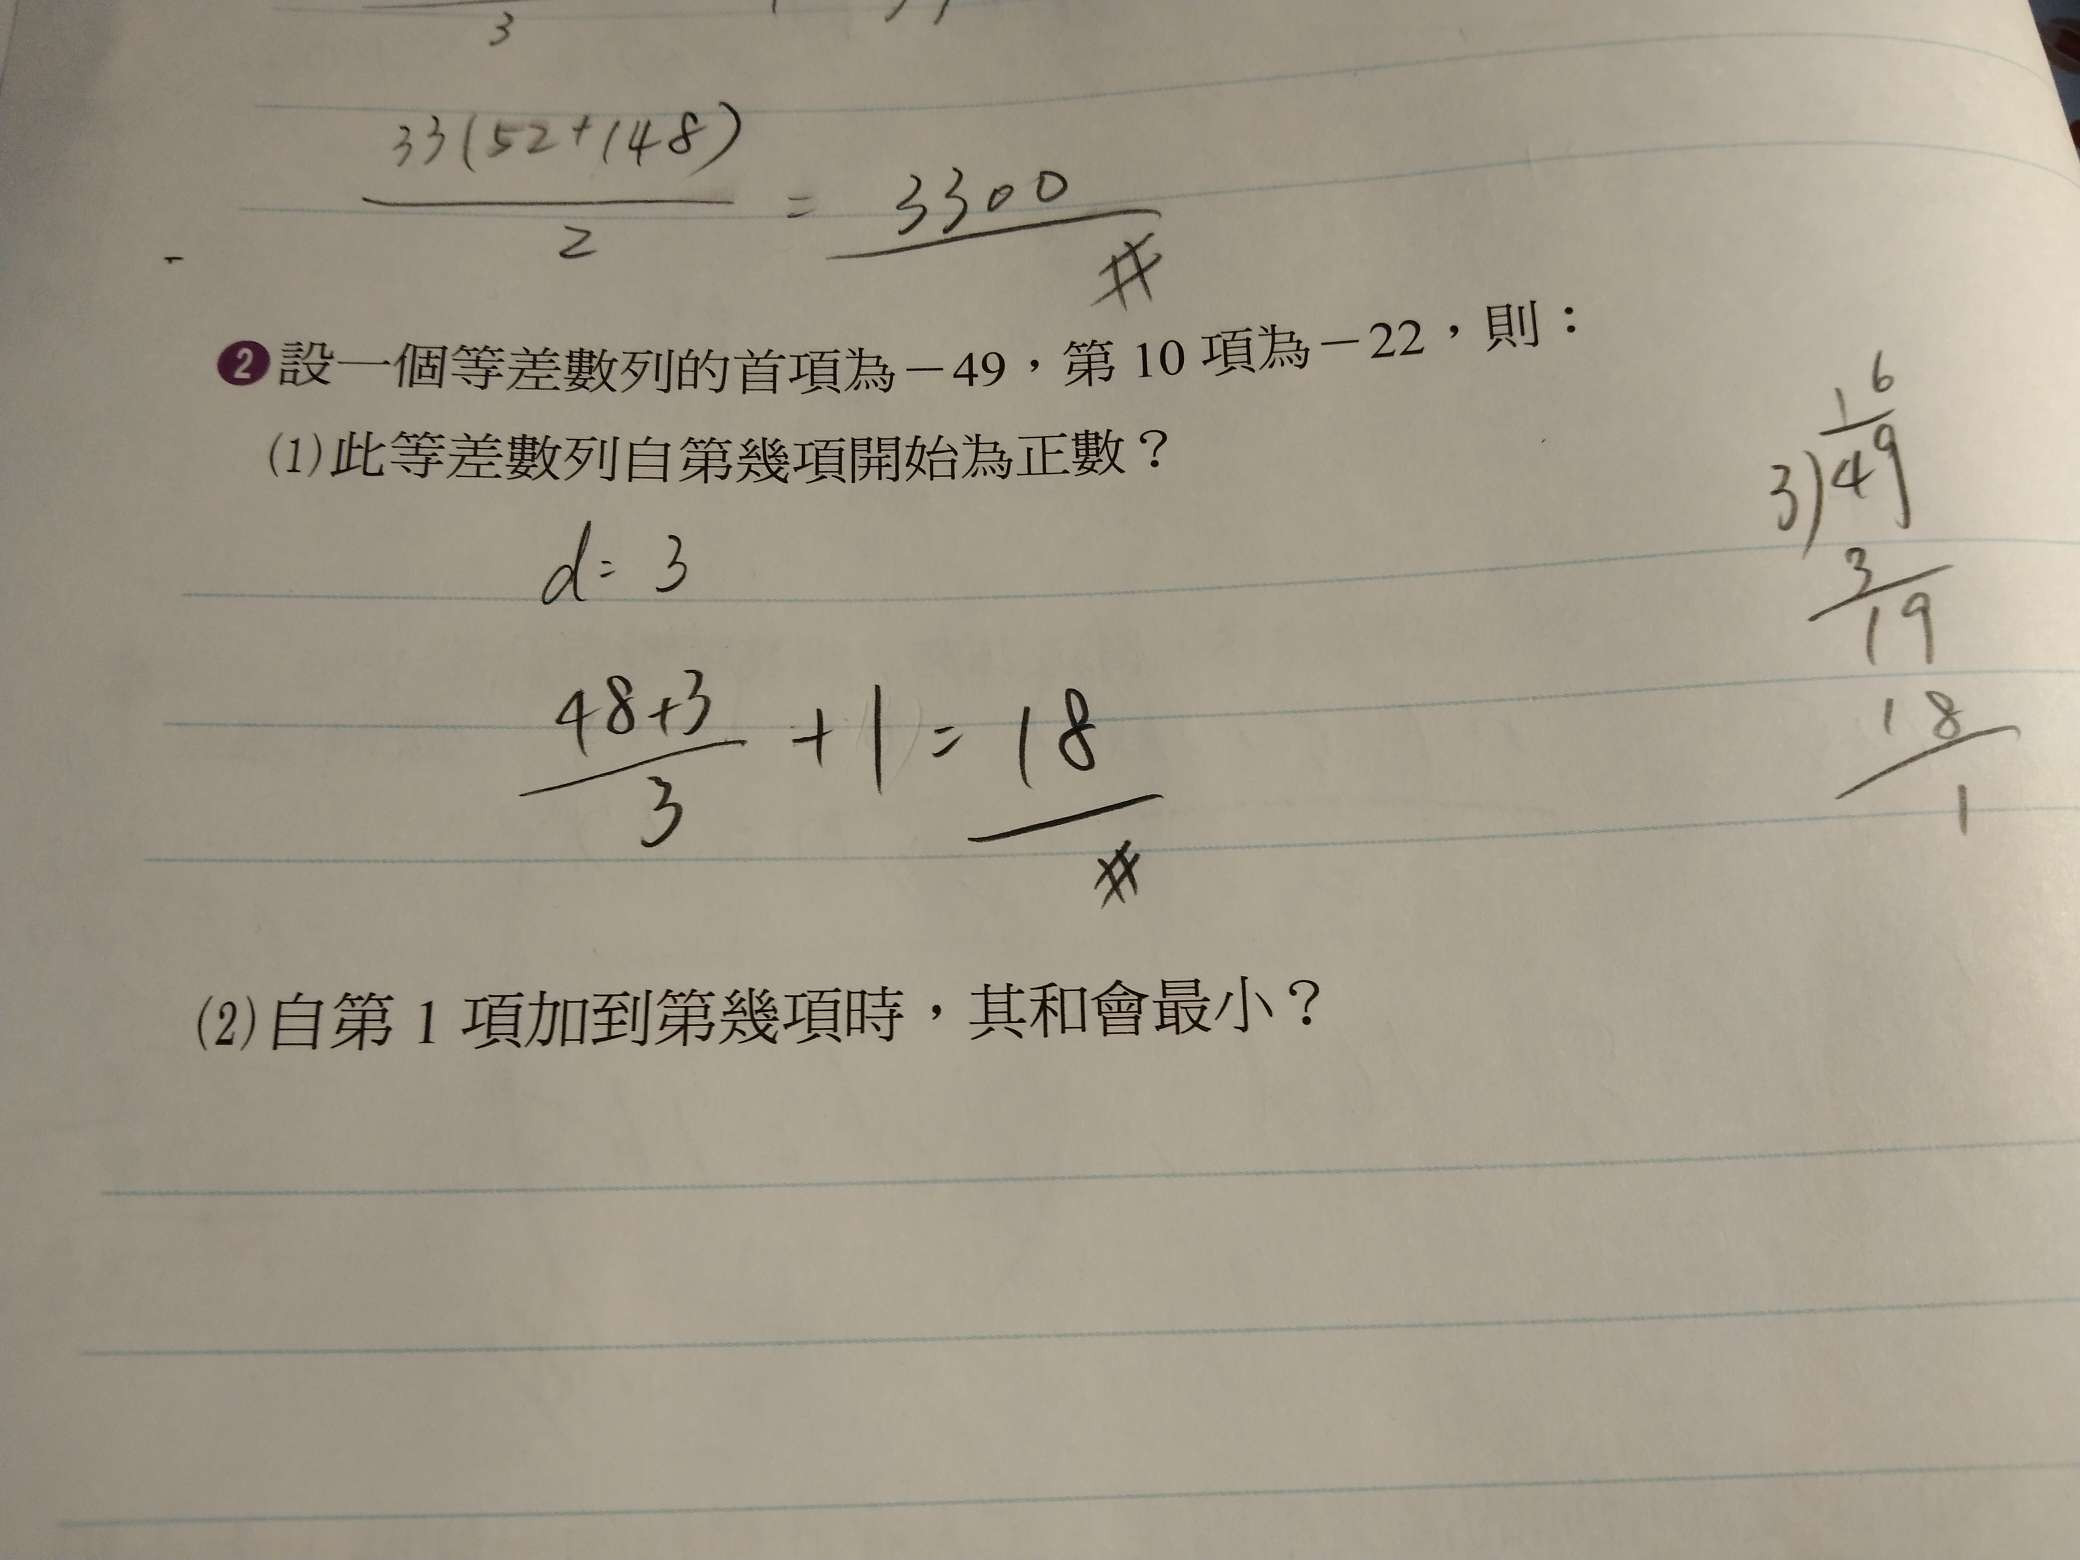 3
33(52+148)
2
= 3300
#
❷設一個等差數列的首項為－49，第 10 項為－22，則：
(1)此等差數列自第幾項開始為正數？
d= 3
48+3
3
+1= 18
#
16
3)49
3
19
18
1
(2)自第 1 項加到第幾項時，其和會最小？